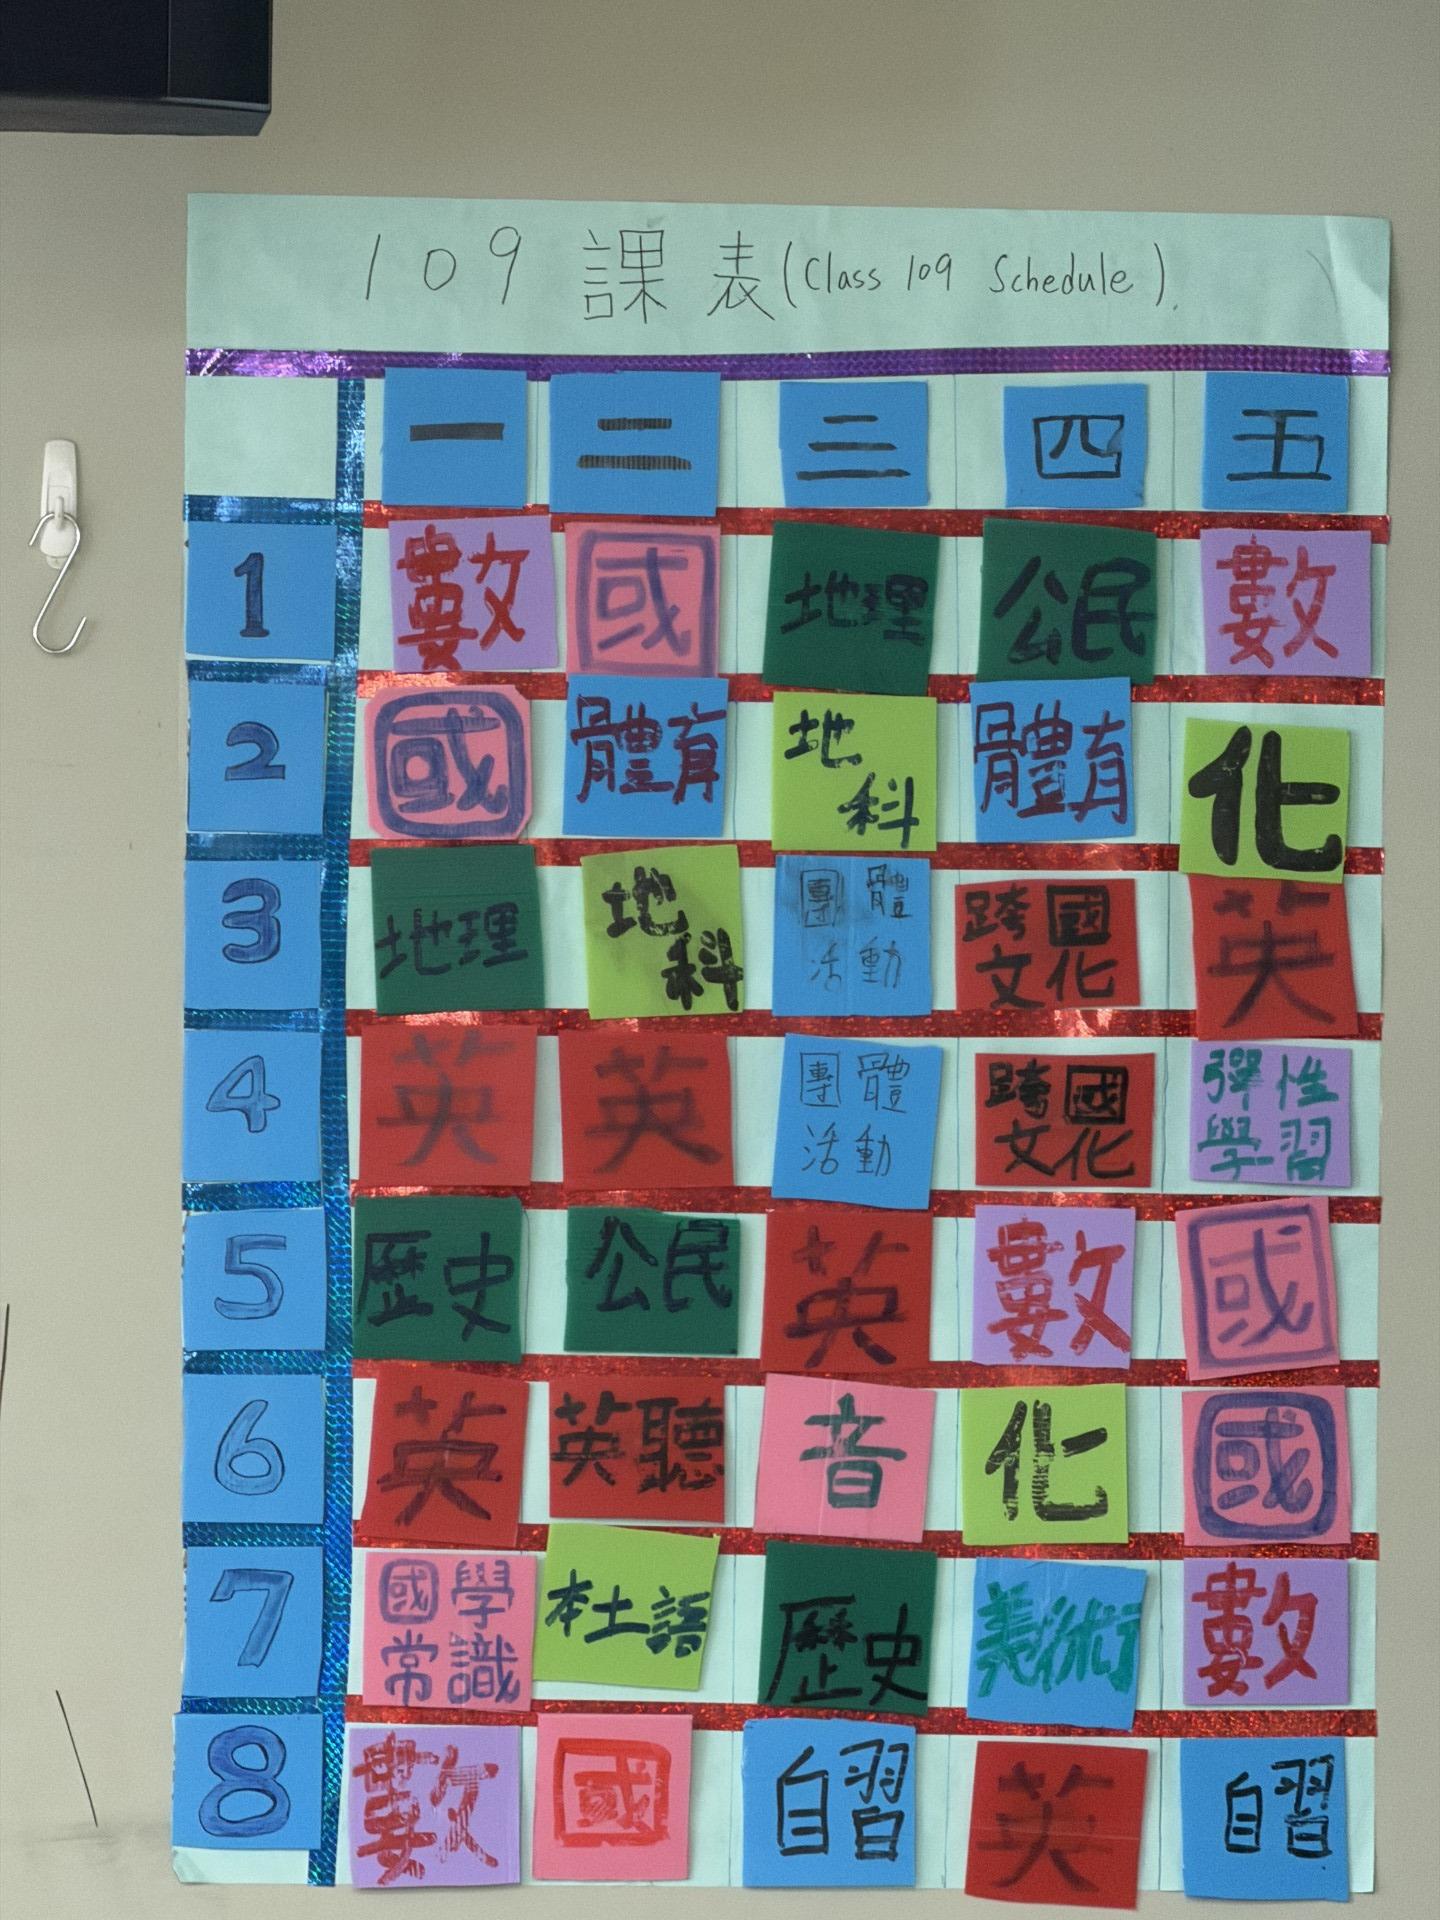 109 課表 (Class 109 Schedule).
一 二 三 四 五
1 數 國 地理 公民 數
2 國 體育 地科 體育 化
3 地理 地科 團體活動 跨國文化 英
4 英 英 團體活動 跨國文化 彈性學習
5 歷史 公民 英 數 國
6 英 英聽 音 化 國
7 國學常識 本土語 歷史 美術 數
8 數 國 自習 英 自習